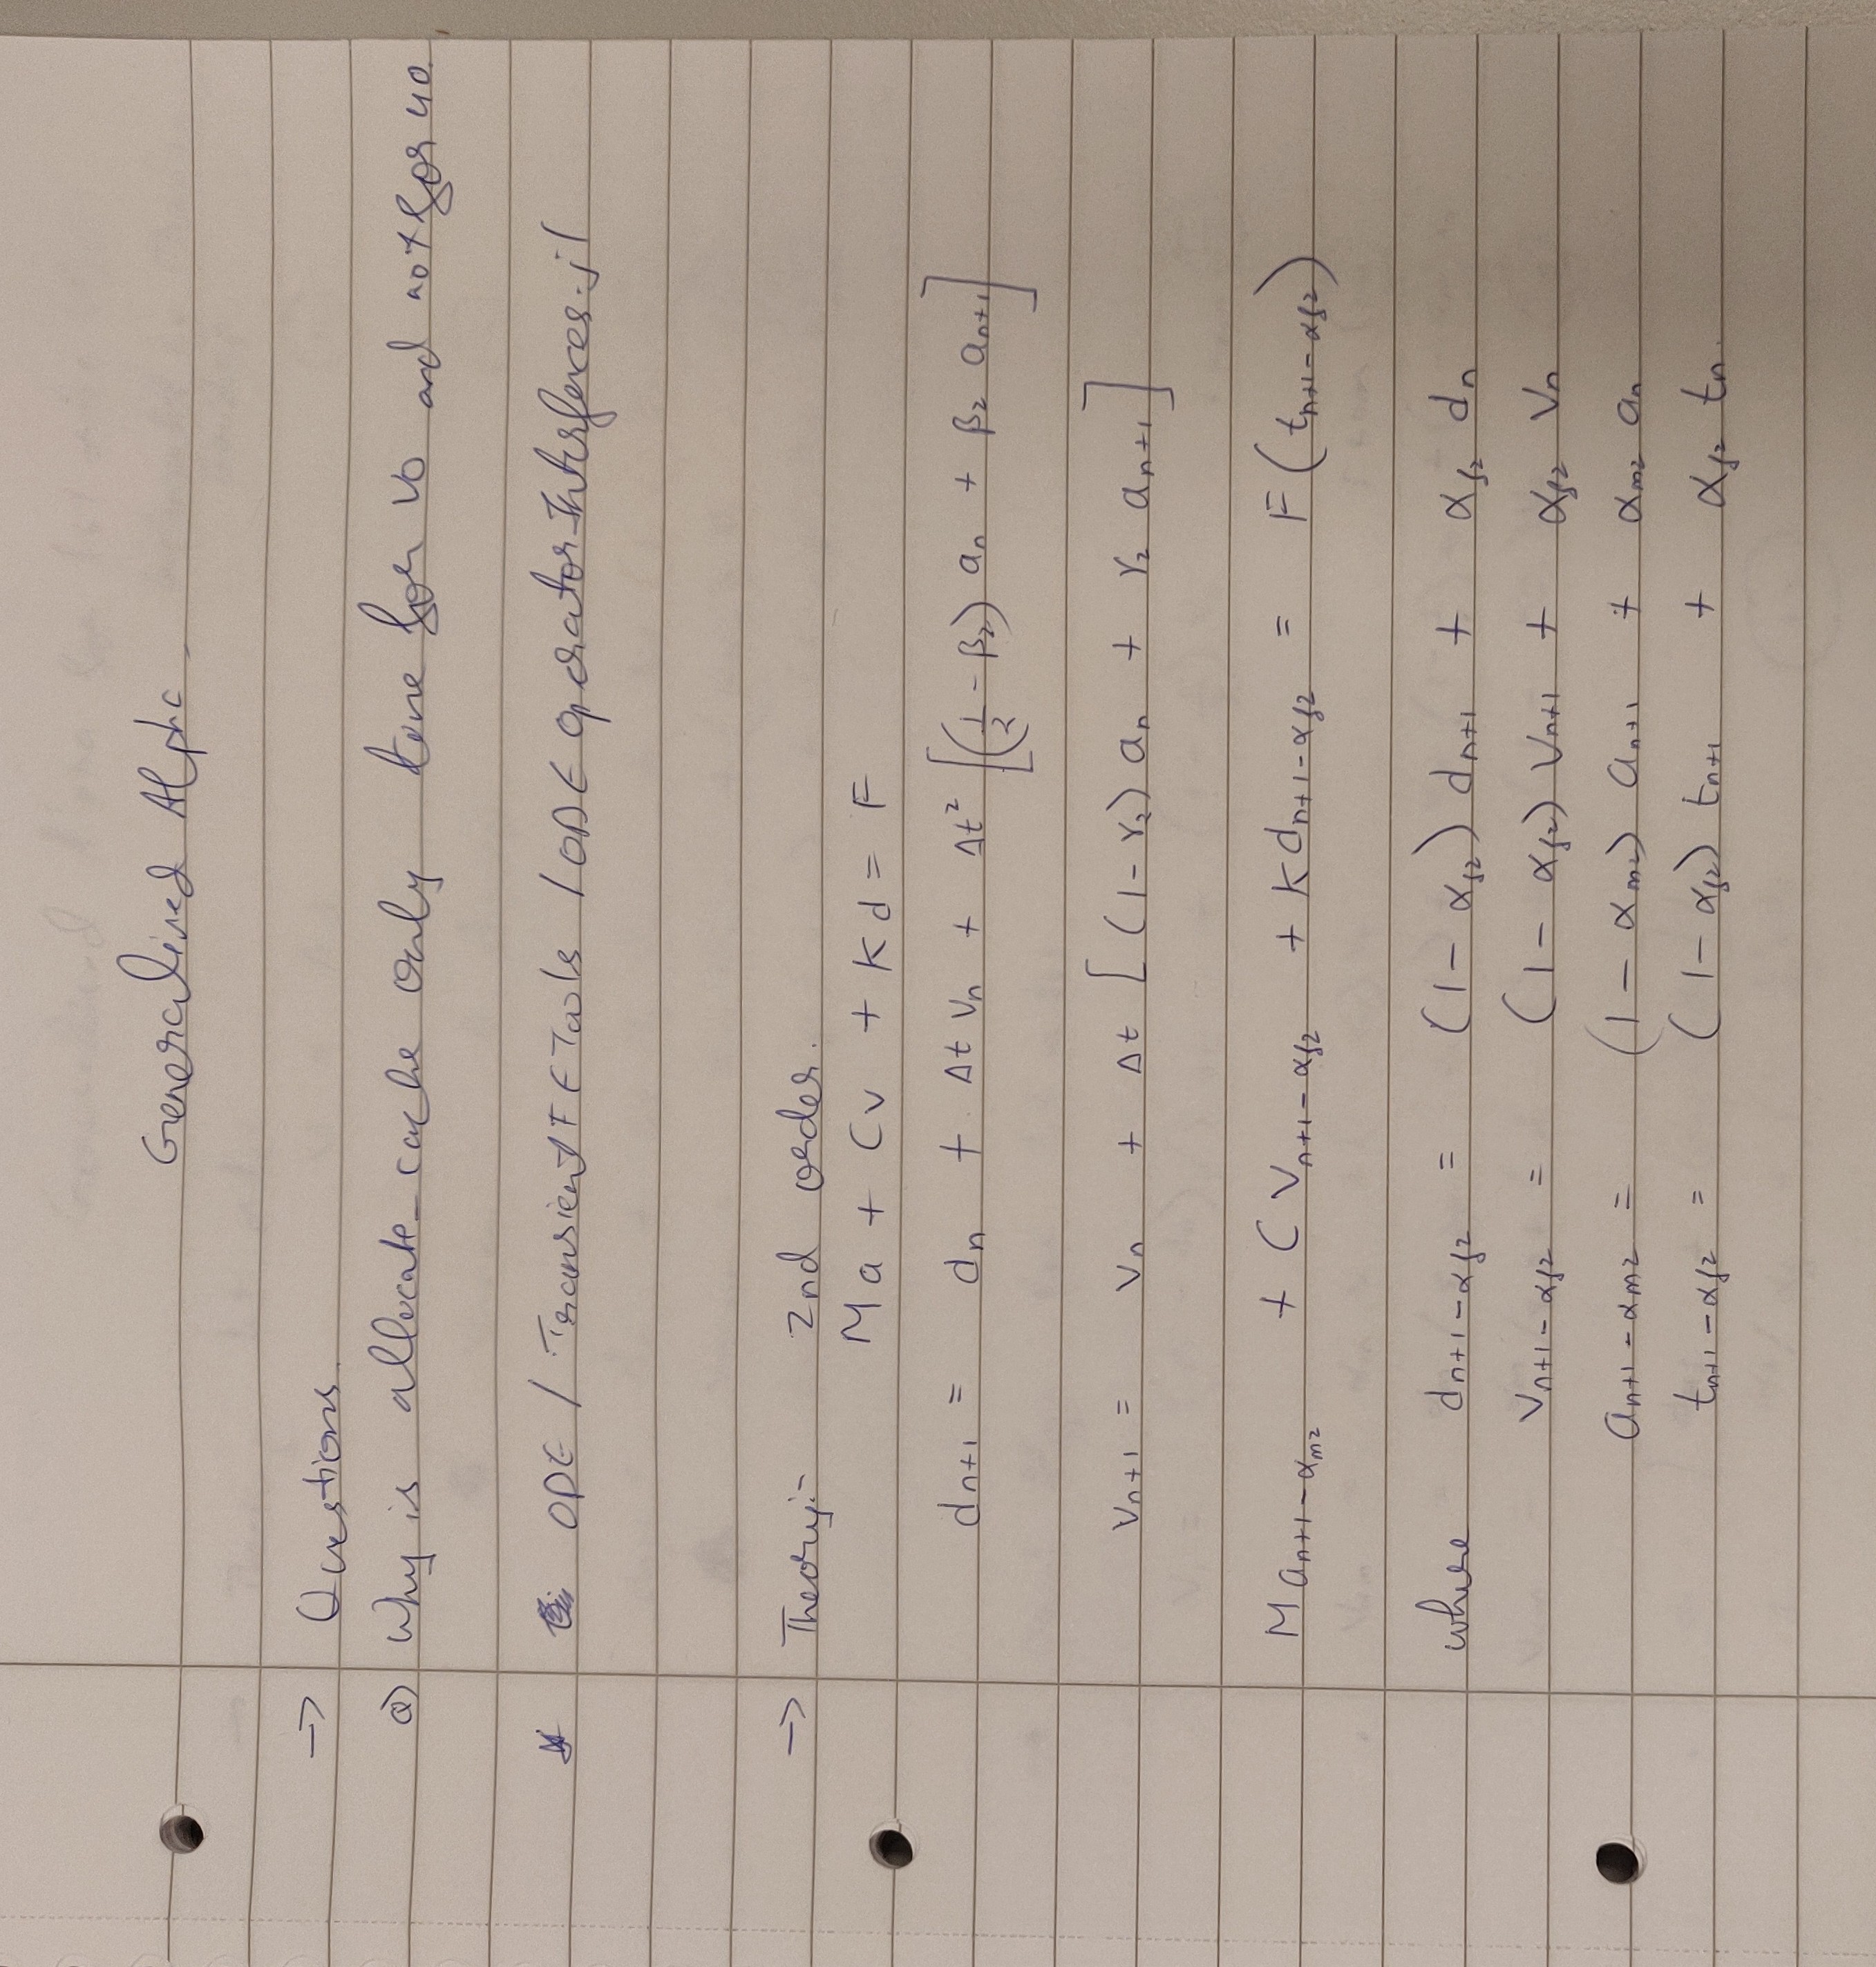 Generalised Alpha
→ Questions.
Q) Why is allocate_cache only done for v0 and not for u0.
* ODE / TransientFETools / ODEoperatorInterfaces.jl
→ Theory:- 2nd order.
Ma + Cv + Kd = F
dₙ₊₁ = dₙ + Δt vₙ + Δt² [(1/2 - β₂) aₙ + β₂ aₙ₊₁]
vₙ₊₁ = vₙ + Δt [(1-γ₂) aₙ + γ₂ aₙ₊₁]
M a_{n+1-α_{m2}} + C v_{n+1-α_{f2}} + K d_{n+1-α_{f2}} = F(t_{n+1-α_{f2}})
where d_{n+1-α_{f2}} = (1-α_{f2}) d_{n+1} + α_{f2} d_n
v_{n+1-α_{f2}} = (1-α_{f2}) v_{n+1} + α_{f2} v_n
a_{n+1-α_{m2}} = (1-α_{m2}) a_{n+1} + α_{m2} a_n
t_{n+1-α_{f2}} = (1-α_{f2}) t_{n+1} + α_{f2} t_n.